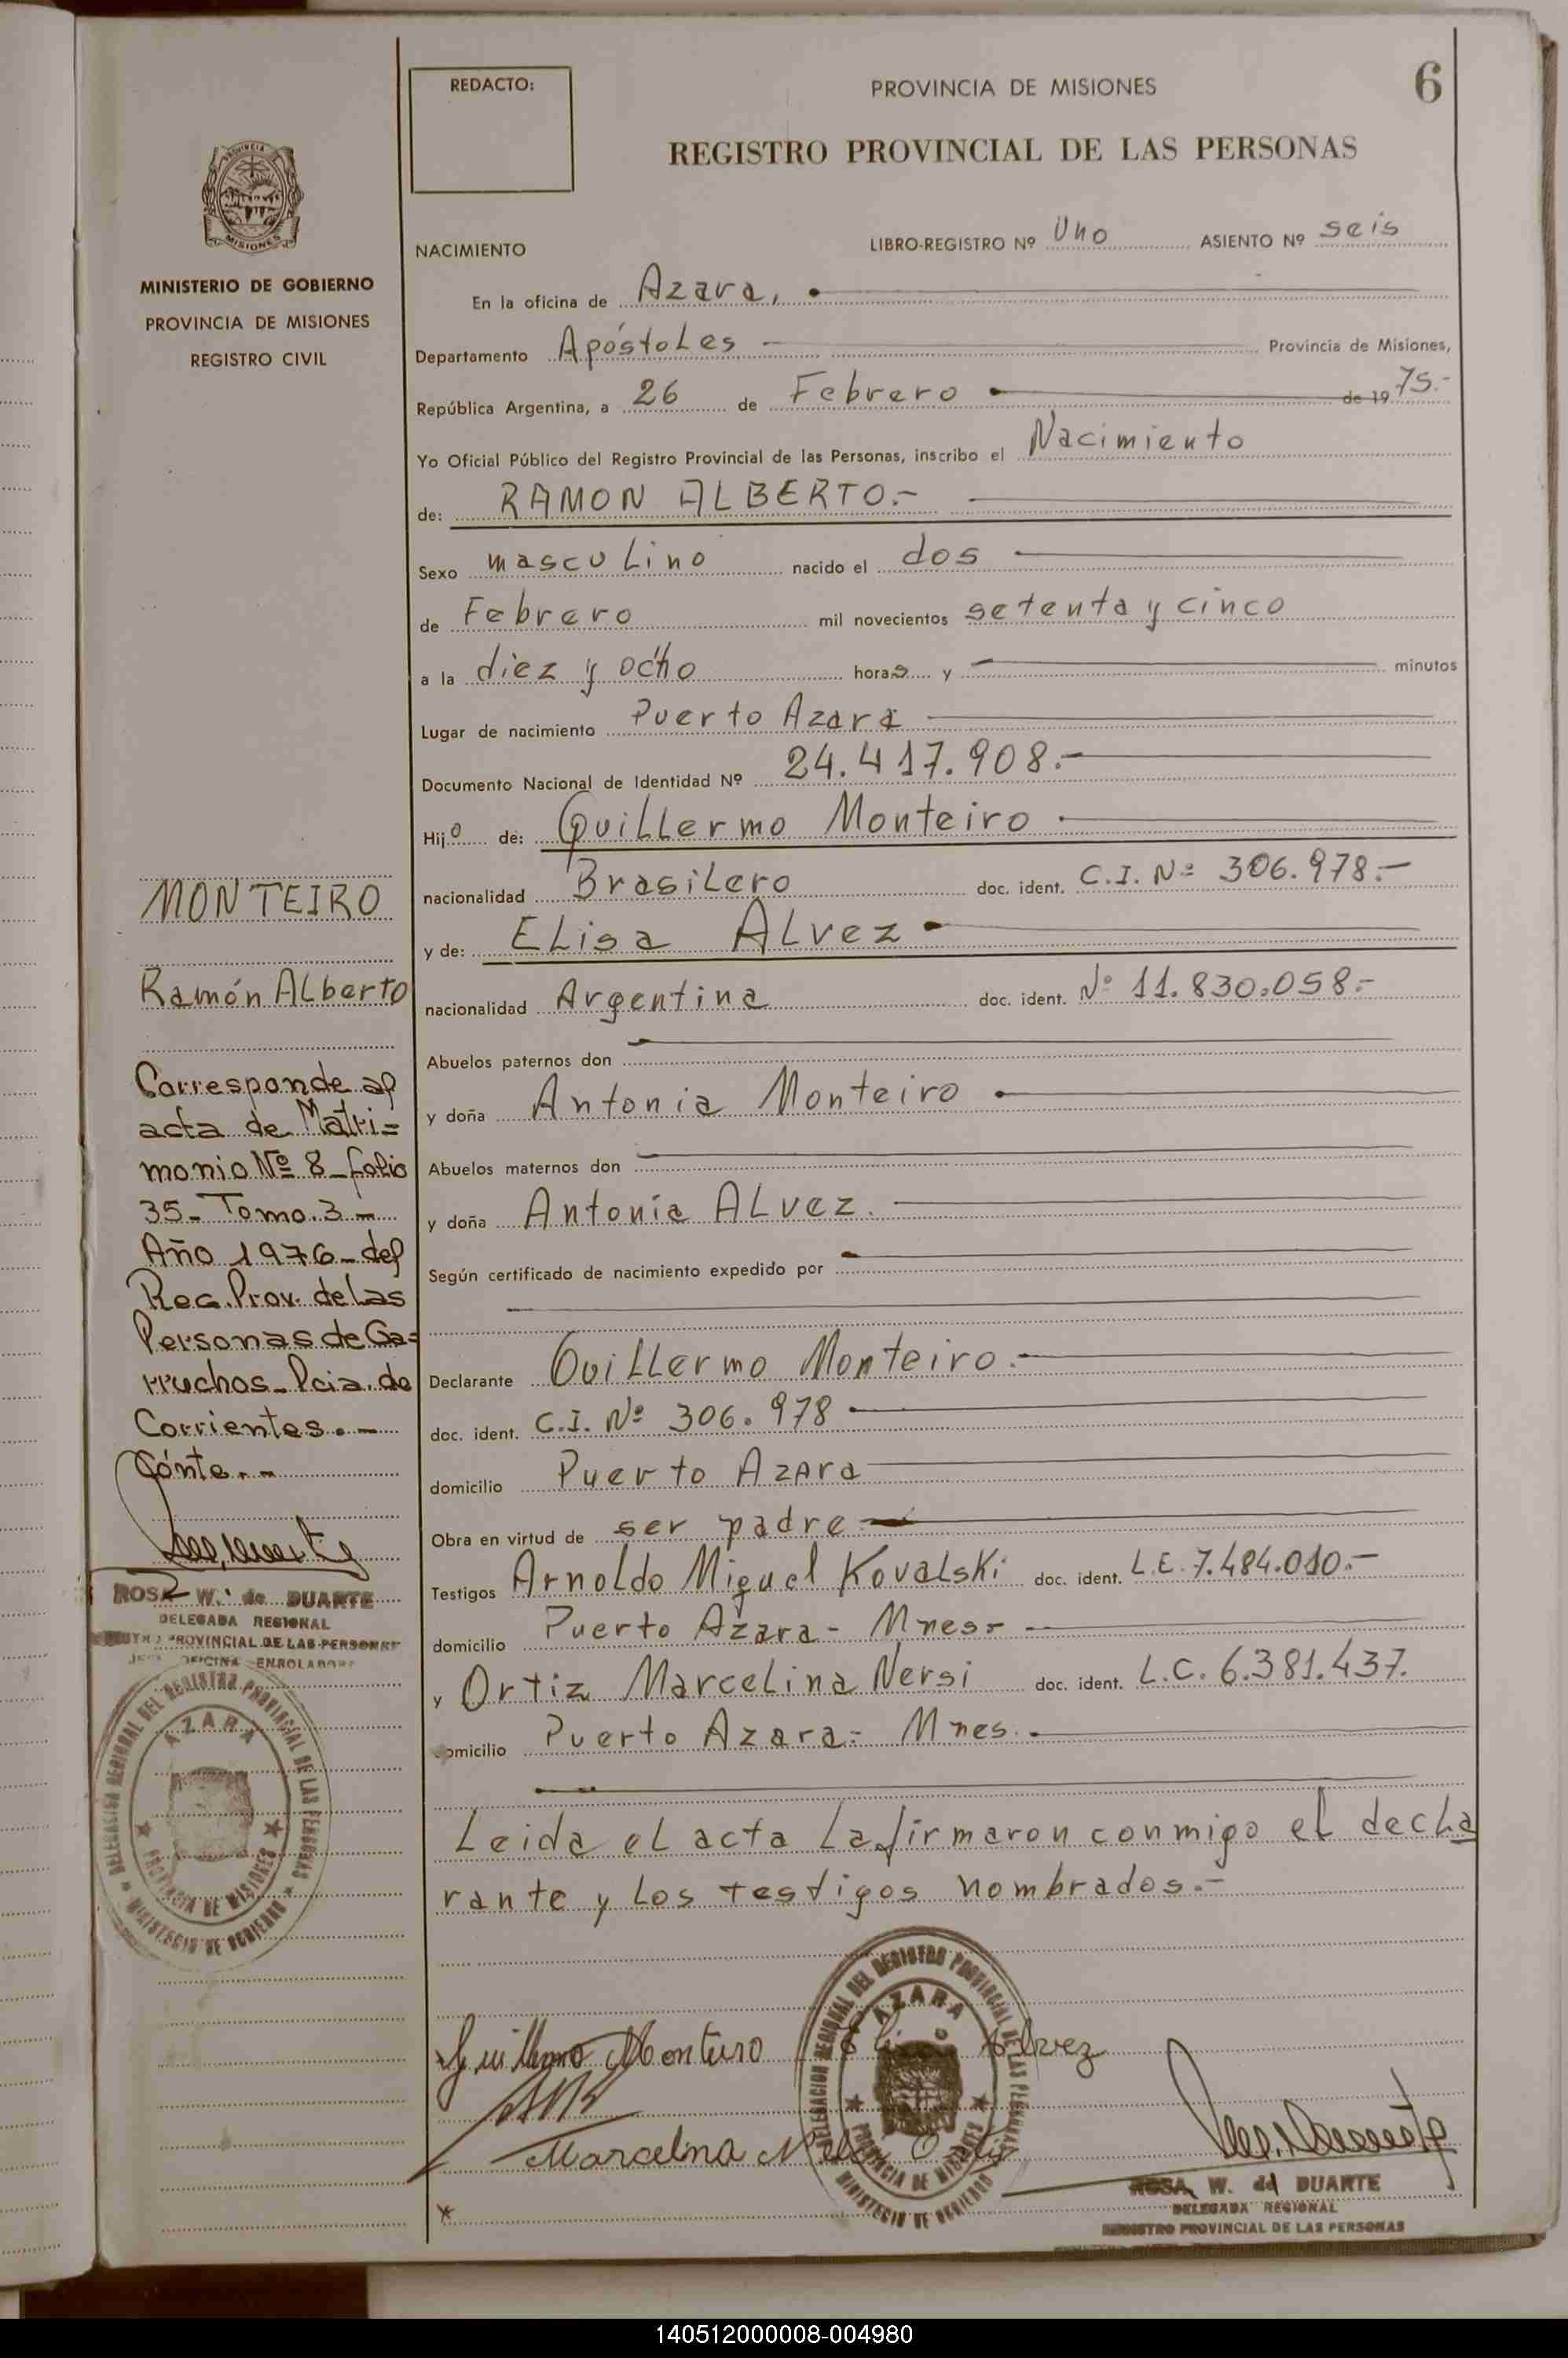 REDACTO:
PROVINCIA DE MISIONES
6
REGISTRO PROVINCIAL DE LAS PERSONAS
PROVINCIA
MISIONES
MINISTERIO DE GOBIERNO
PROVINCIA DE MISIONES
REGISTRO CIVIL
NACIMIENTO
LIBRO-REGISTRO Nº Uno ASIENTO Nº seis
En la oficina de Azara,
Departamento Apóstoles Provincia de Misiones,
República Argentina, a 26 de Febrero de 1975.-
Yo Oficial Público del Registro Provincial de las Personas, inscribo el Nacimiento
de: RAMON ALBERTO.-
Sexo masculino nacido el dos
de Febrero mil novecientos setenta y cinco
a la diez y ocho horas y minutos
Lugar de nacimiento Puerto Azara
Documento Nacional de Identidad Nº 24.417.908.-
Hijo de: Guillermo Monteiro
nacionalidad Brasilero doc. ident. C.I. Nº 306.978.-
y de: Elisa Alvez
nacionalidad Argentina doc. ident. Nº 11.830.058.-
Abuelos paternos don
y doña Antonia Monteiro
Abuelos maternos don
y doña Antonia Alvez.
Según certificado de nacimiento expedido por
Declarante Guillermo Monteiro.-
doc. ident. C.I. Nº 306.978
domicilio Puerto Azara
Obra en virtud de ser padre
Testigos Arnoldo Miguel Kovalski doc. ident. L.E. 7.484.010.-
domicilio Puerto Azara- Mnes-
y Ortiz Marcelina Nersi doc. ident. L.C. 6.381.437.
domicilio Puerto Azara- Mnes.
Leida el acta la firmaron conmigo el decla
rante y los testigos nombrados.-
MONTEIRO
Ramón Alberto
Corresponde al
acta de Matri=
monio Nº 8-folio
35- Tomo.3-
Año 1976-del
Reg.Prov. de Las
Personas de Ga=
rruchos-Pcia.de
Corrientes.-
Conte.-
ROSA W. de DUARTE
DELEGADA REGIONAL
PROVINCIAL DE LAS PERSONAS
OFICINA ENROLADORA
DELEGACION REGIONAL DEL REGISTRO PROVINCIAL DE LAS PERSONAS
AZARA
PROVINCIA DE MISIONES
MINISTERIO DE GOBIERNO
Guillermo Monteiro
Alvez
Marcelina
DELEGACION REGIONAL DEL REGISTRO PROVINCIAL DE LAS PERSONAS
AZARA
PROVINCIA DE MISIONES
MINISTERIO DE GOBIERNO
ROSA W. de DUARTE
DELEGADA REGIONAL
REGISTRO PROVINCIAL DE LAS PERSONAS
140512000008-004980